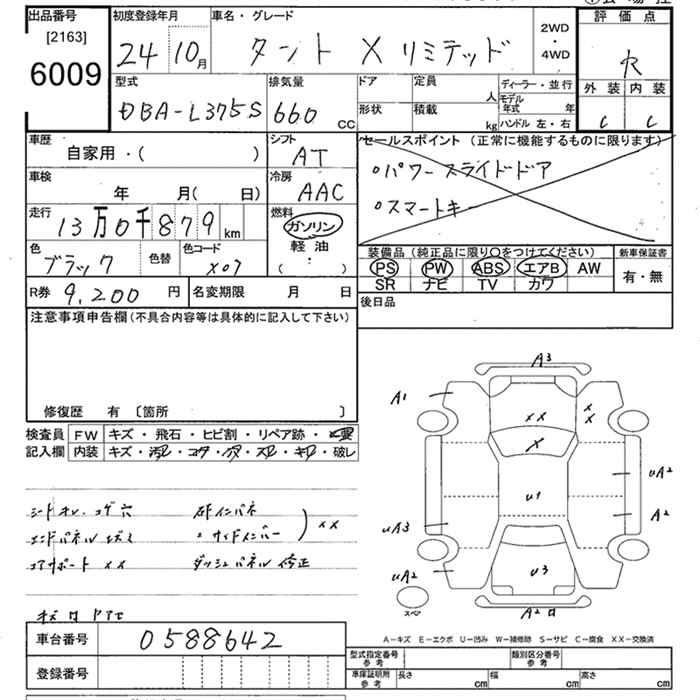 出品番号
[2163]
6009
初度登録年月
24 10月
車名・グレード
タント X リミテッド
2WD
・
4WD
評価点
R
外装 内装
C C
型式
DBA-L375S
排気量
660 cc
ドア
形状
定員 人
積載 kg
ディーラー・並行
モデル年式 年
ハンドル 左・右
車歴
自家用・( )
シフト
AT
セールスポイント (正常に機能するものに限ります)
パワースライドドア
スマートキー
車検
年 月( 日)
冷房
AAC
走行
13万0千879km
燃料
ガソリン
軽油
( )
色
ブラック
色替
色コード
X07
装備品 (純正品に限り〇をつけてください)
PS PW ABS エアB AW
SR ナビ TV カワ
新車保証書
有・無
R券 9,200円
名変期限 月 日
後日品
注意事項申告欄(不具合内容等は具体的に記入して下さい)
修復歴 有 〔箇所 〕
検査員記入欄
FW キズ・飛石・ヒビ割・リペア跡・
内装 キズ・汚レ・コゲ・穴・スレ・キレ・破レ
シートスレ、コゲ穴
エンドパネル
コアサポート XX
インパネ
サイドメンバー
XX
ダッシュパネル 修正
A3
A1
XX
XX
X
U1
UA2
A2
UA3
UA2
U3
A2
スペア
A-キズ E-エクボ U-凹み W-補修跡 S-サビ C-腐食 XX-交換済
車台番号
0588642
登録番号
型式指定番号
参考
類別区分番号
参考
車庫証明用
参考
長さ cm
幅 cm
高さ cm